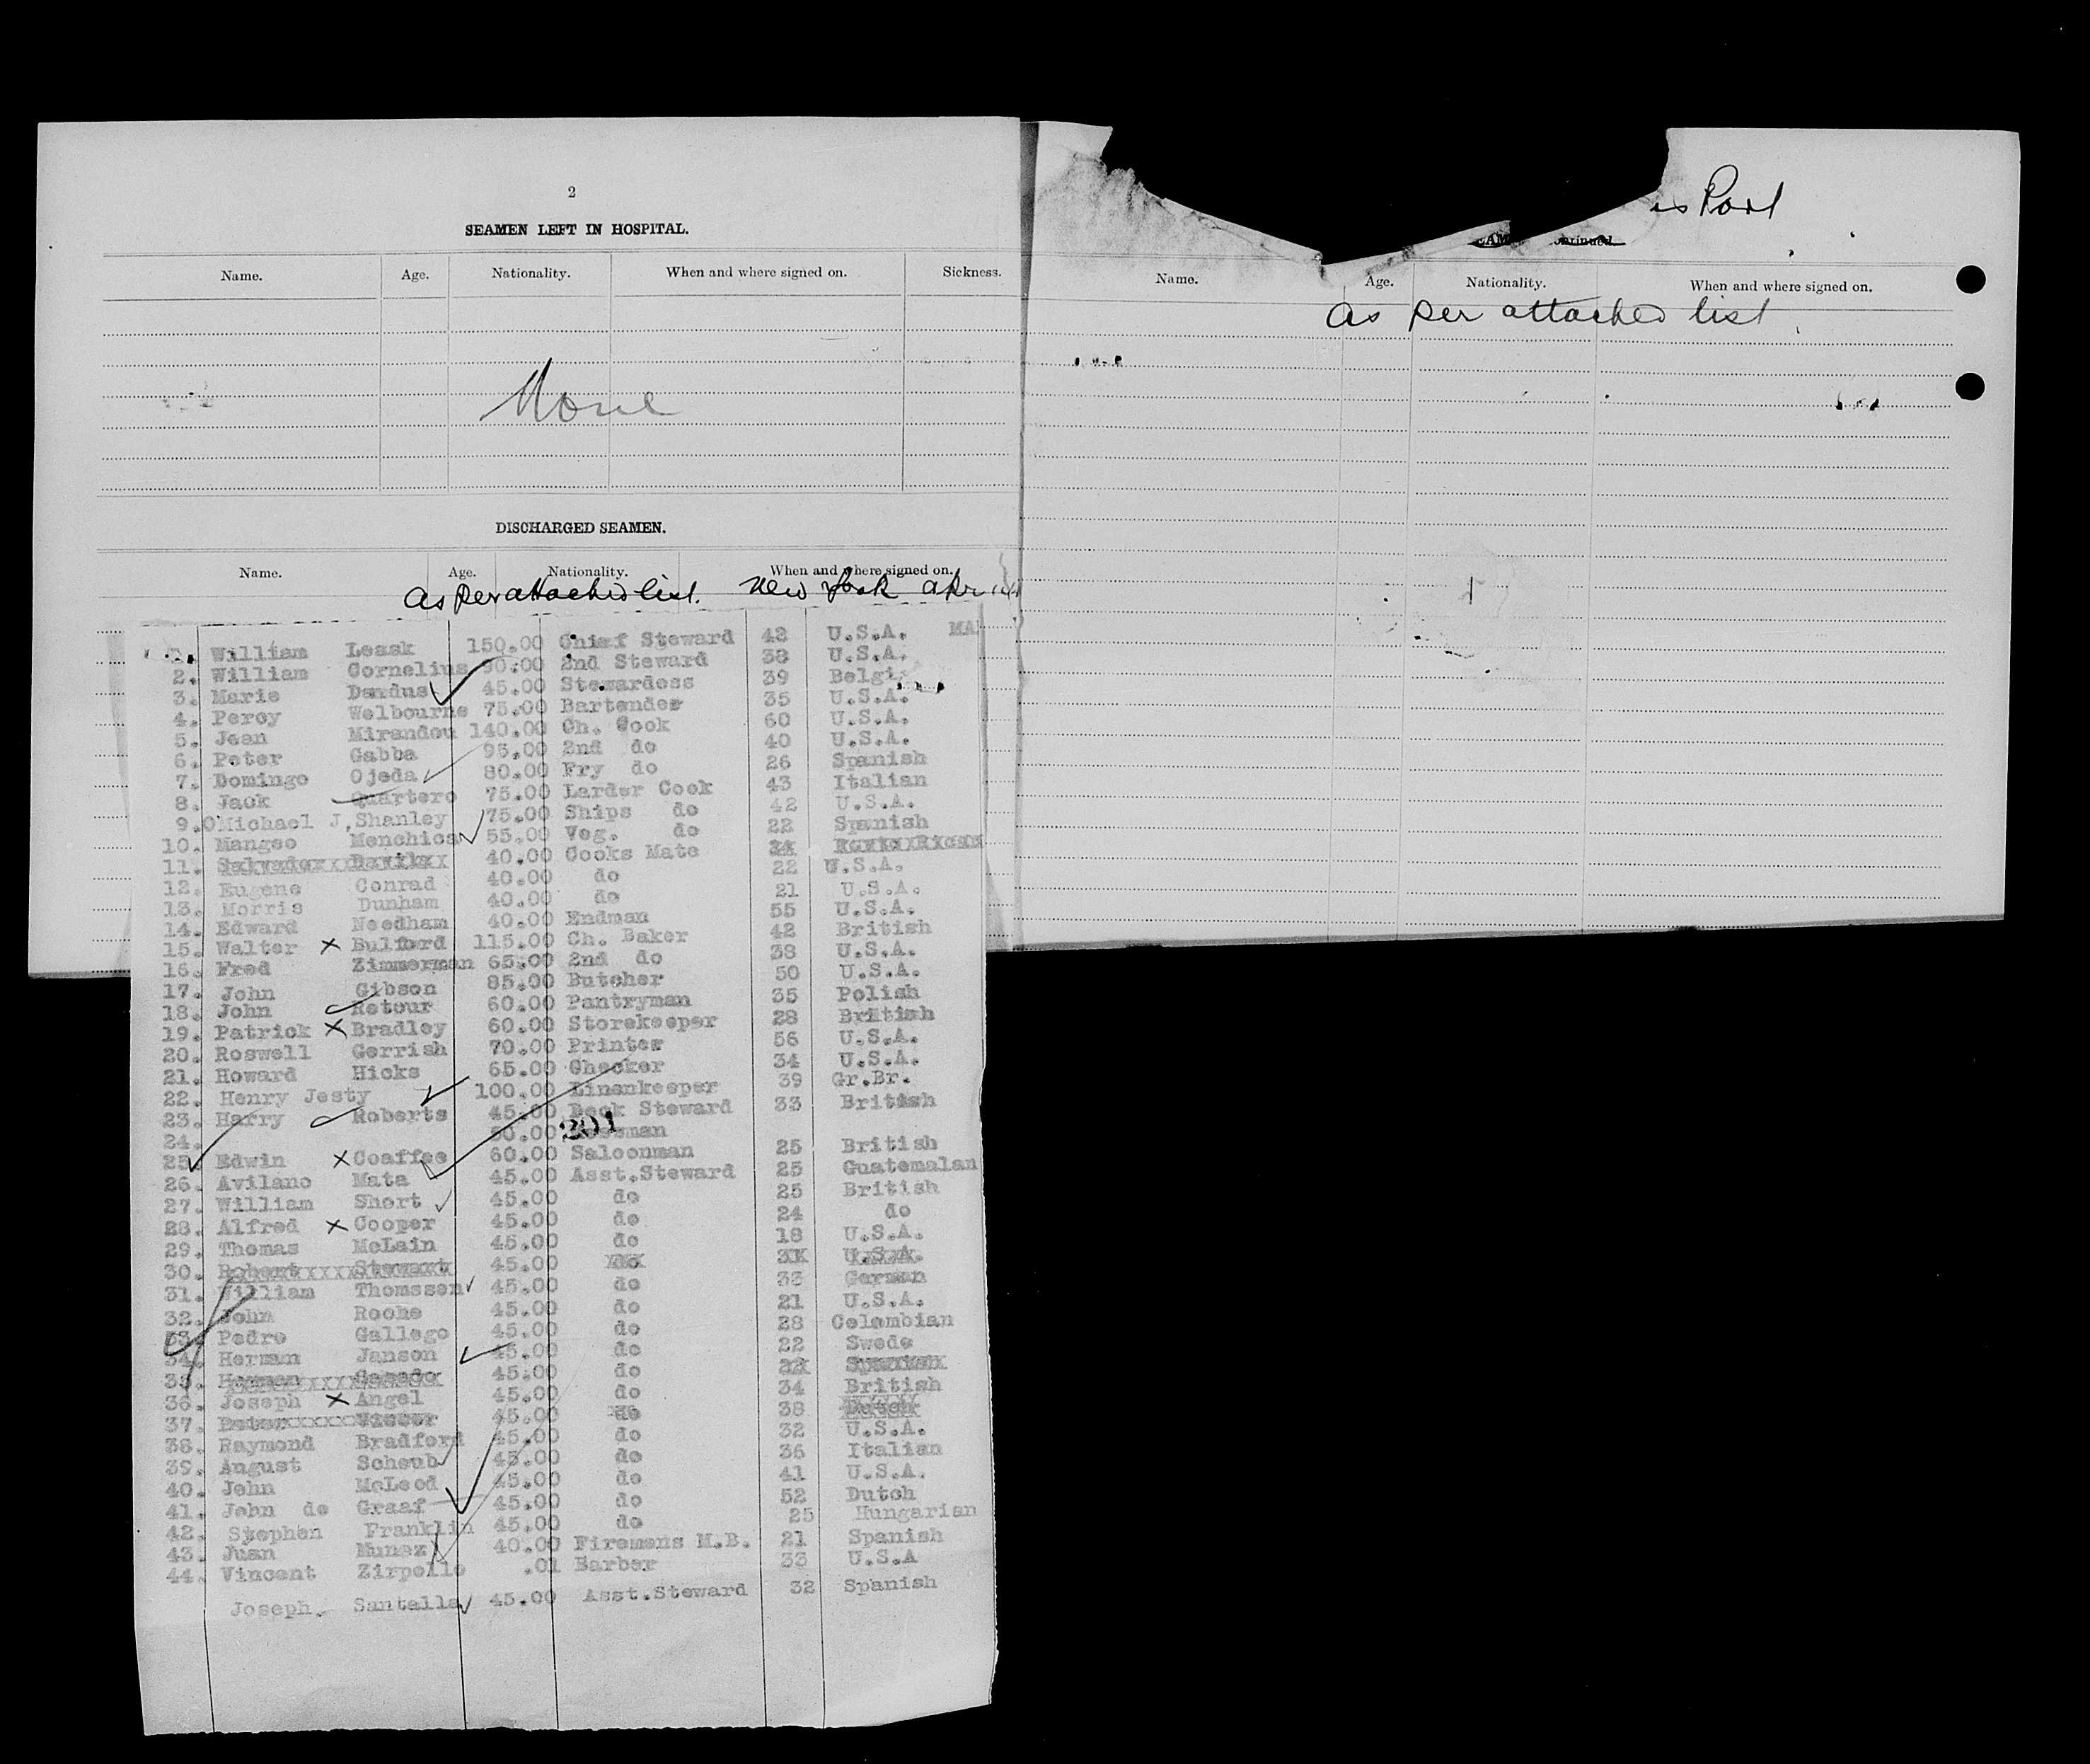 2
SEAMEN LEFT IN HOSPITAL.
Name. Age. Nationality. When and where signed on. Sickness.
None
DISCHARGED SEAMEN.
Name. Age. Nationality. When and where signed on.
as per attached list. New York apr
1. William Leask 150.00 Chief Steward 42 U.S.A.
2. William Cornelius 90.00 2nd Steward 38 U.S.A.
3. Marie Dardus 45.00 Stewardess 39 Belgi
4. Percy Welbourne 75.00 Bartender 35 U.S.A.
5. Jean Mirandou 140.00 Ch. Cook 60 U.S.A.
6. Peter Gabba 95.00 2nd do 40 U.S.A.
7. Domingo Ojeda 80.00 Fry do 26 Spanish
8. Jack Quartero 75.00 Larder Cook 43 Italian
9. Michael J. Shanley 75.00 Ships do 42 U.S.A.
10. Mangeo Menchica 55.00 Veg. do 22 Spanish
11. Salvador Davila 40.00 Cooks Mate
12. Eugene Conrad 40.00 do 22 U.S.A.
13. Morris Dunham 40.00 do 21 U.S.A.
14. Edward Needham 40.00 Endman 55 U.S.A.
15. Walter x Bulford 115.00 Ch. Baker 42 British
16. Fred Zimmerman 65.00 2nd do 38 U.S.A.
17. John Gibson 85.00 Butcher 50 U.S.A.
18. John Retour 60.00 Pantryman 35 Polish
19. Patrick x Bradley 60.00 Storekeeper 28 British
20. Roswell Gerrish 70.00 Printer 56 U.S.A.
21. Howard Hicks 65.00 Checker 34 U.S.A.
22. Henry Jesty 100.00 Linenkeeper 39 Gr.Br.
23. Harry Roberts 45.00 Deck Steward 33 British
24. 50.00 201
25. Edwin x Coaffee 60.00 Saloonman 25 British
26. Avilano Mata 45.00 Asst.Steward 25 Guatemalan
27. William Short 45.00 do 25 British
28. Alfred x Cooper 45.00 do 24 do
29. Thomas McLain 45.00 do 18 U.S.A.
30. Robert Stewart 45.00 do U.S.A.
31. William Thomssen 45.00 do 33 German
32. John Roche 45.00 do 21 U.S.A.
33. Pedro Gallego 45.00 do 28 Colombian
34. Herman Janson 45.00 do 22 Swede
35. 45.00 do Spanish
36. Joseph x Angel 45.00 do 34 British
37. Peter 45.00 do 38 Dutch
38. Raymond Bradford 45.00 do 32 U.S.A.
39. August Scheub 45.00 do 36 Italian
40. John McLeod 45.00 do 41 U.S.A.
41. John de Graaf 45.00 do 52 Dutch
42. Stephen Franklin 45.00 do 25 Hungarian
43. Juan Nunez 40.00 Firemens M.B. 21 Spanish
44. Vincent Zirpollo .01 Barber 33 U.S.A
Joseph Santalla 45.00 Asst.Steward 32 Spanish
is Port
Name. Age. Nationality. When and where signed on.
as per attached list.